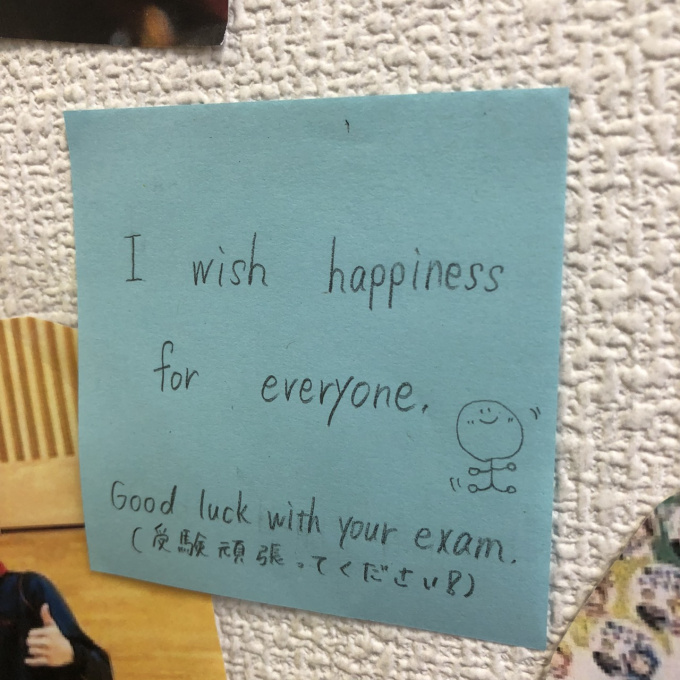 I wish happiness
for everyone.
Good luck with your exam.
(受験頑張ってください!!)